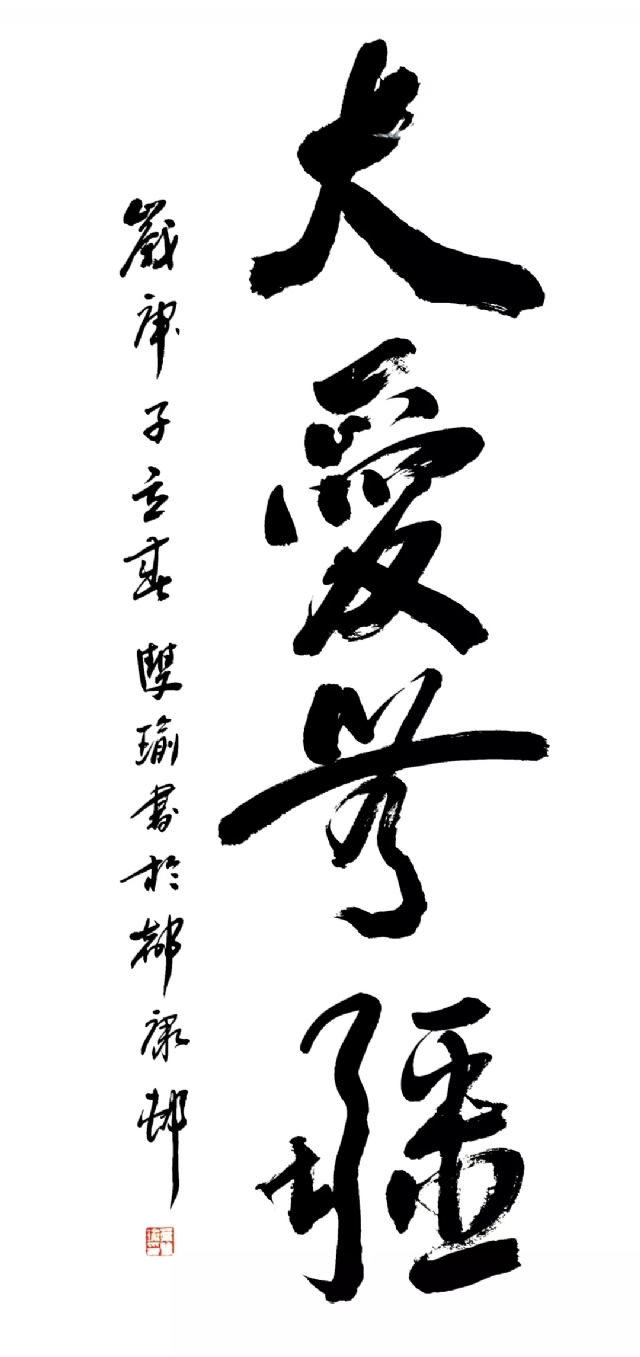 大愛無疆
歲庚子立春雙瑜書於都康邨